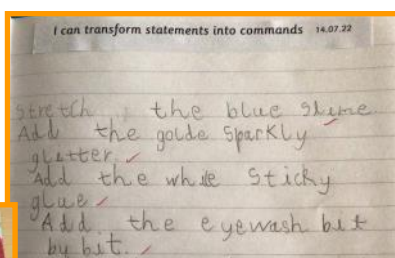 I can transform statements into commands 14.07.22
Stretch the blue slime
Add the golde sparkly
glitter.
Add the white sticky
glue
Add the eyewash bit
by bit.